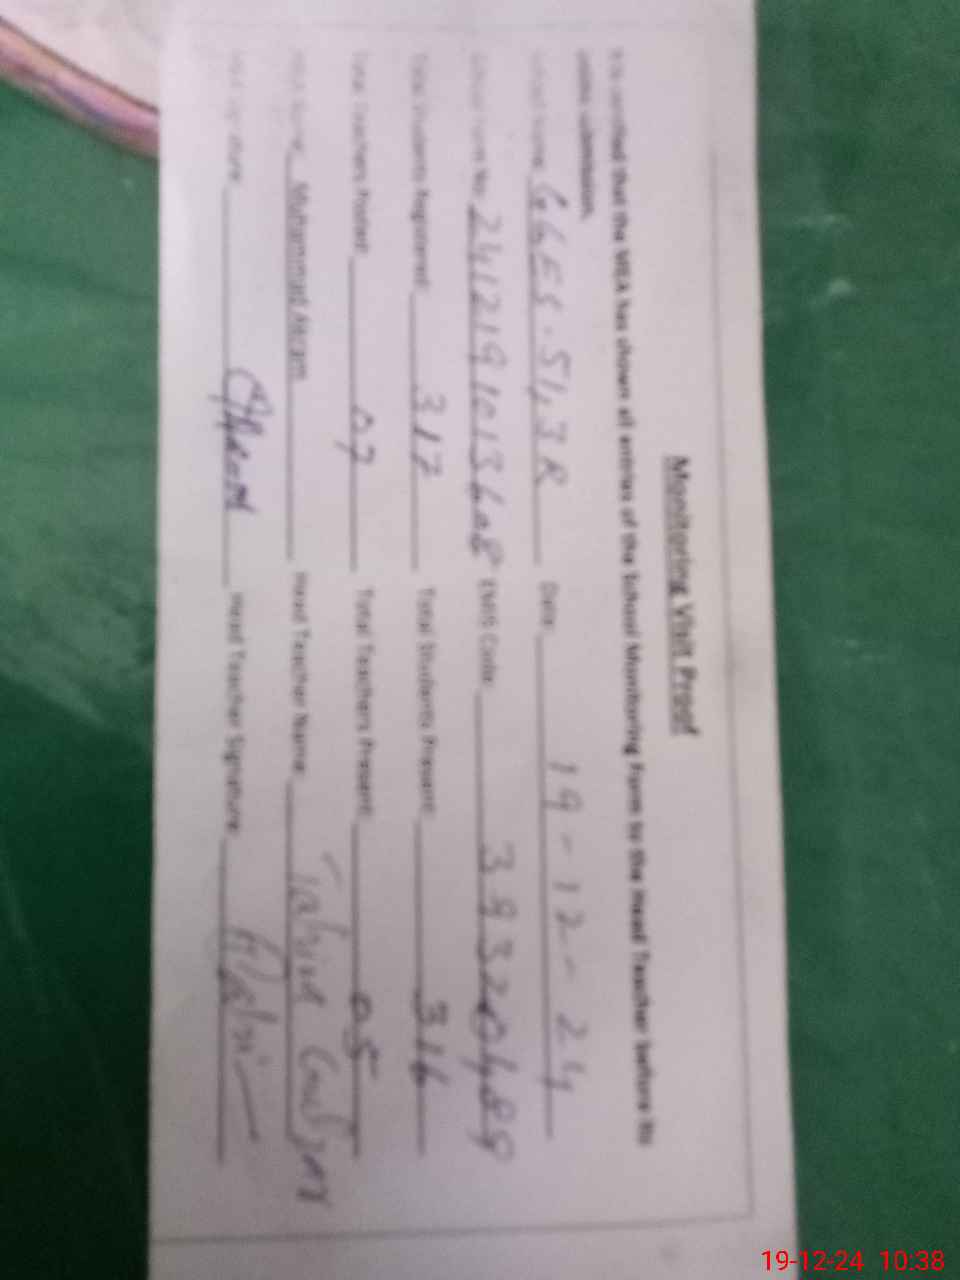 Monitoring Visit Proof
It is certified that the MEA has shown all entries of the School Monitoring Form to the Head Teacher before its
online submission.
School Name GGES. 51, 3R Date: 19-12-24
School Form No: EMIS Code: 39320489
Total Students Registered: 317 Total Students Present: 316
Total Teachers Posted: 07 Total Teachers Present: 05
MEA Name: Muhammad Akram Head Teacher Name:
MEA Signature Head Teacher Signature
19-12-24 10:38